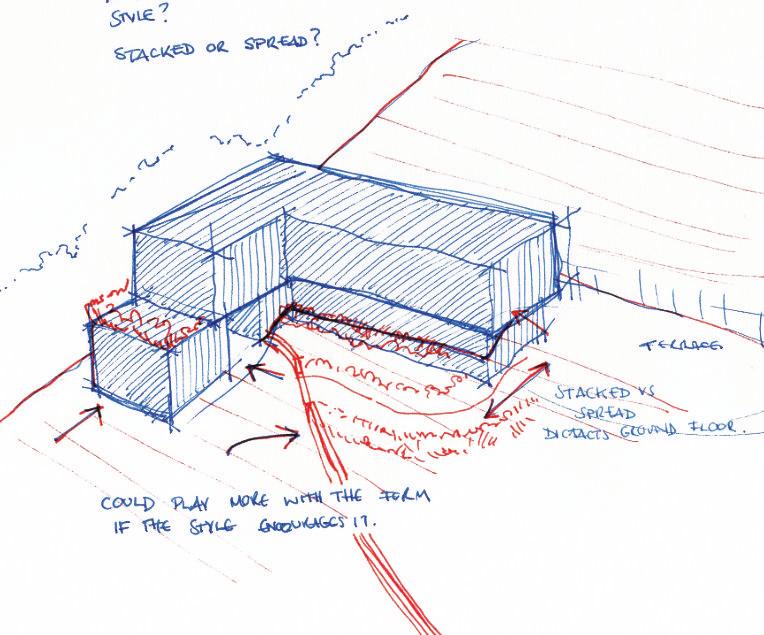 STYLE?
STACKED OR SPREAD?
TERRACE
STACKED VS
SPREAD
DICTACTS GROUND FLOOR.
COULD PLAY MORE WITH THE FORM
IF THE STYLE ENCOURAGES IT.